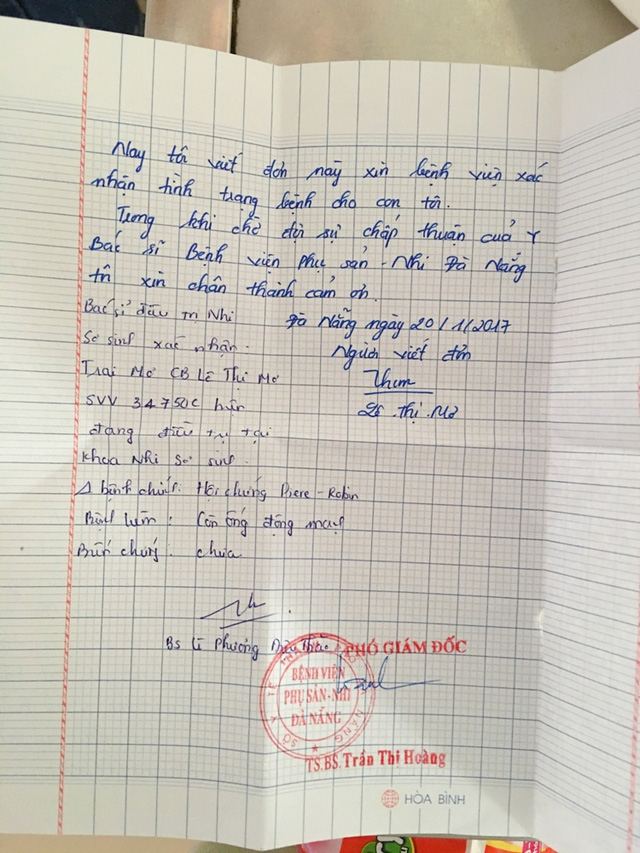 Nay tôi viết đơn này xin bệnh viện xác
nhận tình trạng bệnh cho con tôi.
Trong khi chờ đợi sự chấp thuận của Y
Bác sĩ Bệnh viện phụ sản - Nhi Đà Nẵng
tôi xin chân thành cảm ơn.
Đà Nẵng ngày 20/1/2017
Người viết đơn
Thơm
Lê Thị Mơ
Bác sĩ điều trị Nhi
Sơ sinh xác nhận.
Trai Mơ CB Lê Thị Mơ
SVV 34750C hiện
đang điều trị tại
Khoa Nhi Sơ sinh.
Δ bệnh chính: Hội chứng Piere - Robin
Bệnh kèm: Còn ống động mạch
Biến chứng: chưa
Bs Lê Phương
PHÓ GIÁM ĐỐC
SỞ Y TẾ THÀNH PHỐ ĐÀ NẴNG
BỆNH VIỆN
PHỤ SẢN-NHI
ĐÀ NẴNG
TS.BS. Trần Thị Hoàng
HÒA BÌNH